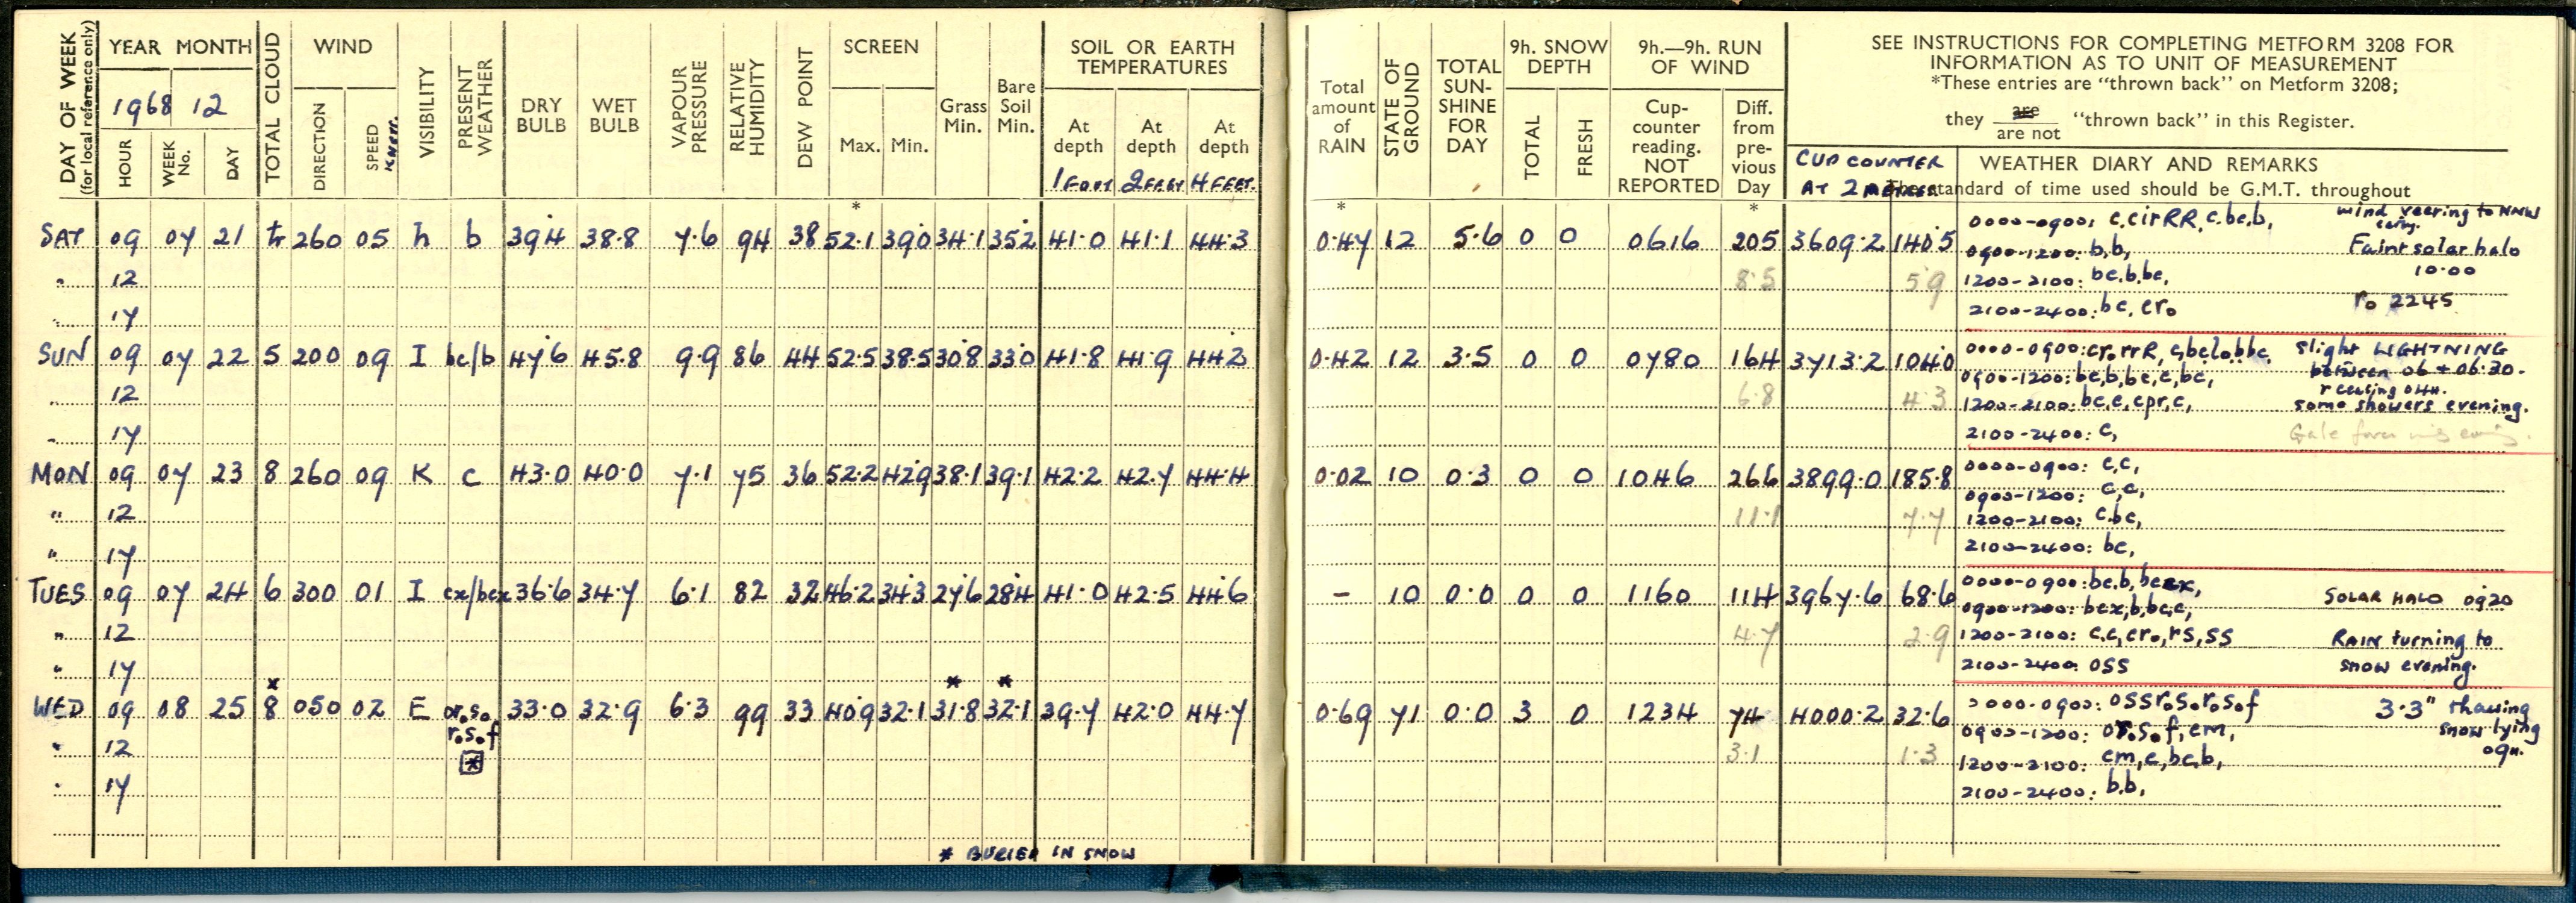 DAY OF WEEK
(for local reference only)
YEAR MONTH
1968 12
HOUR
WEEK No.
DAY
TOTAL CLOUD
WIND
DIRECTION
SPEED
VISIBILITY
PRESENT WEATHER
DRY BULB
WET BULB
VAPOUR PRESSURE
RELATIVE HUMIDITY
DEW POINT
SCREEN
Max. Min.
Grass Min.
Bare Soil Min.
SOIL OR EARTH
TEMPERATURES
At depth At depth At depth
1 FOOT 2 FEET 4 FEET.
Total amount of RAIN
STATE OF GROUND
TOTAL SUN-SHINE FOR DAY
9h. SNOW DEPTH
TOTAL
FRESH
9h.—9h. RUN OF WIND
Cup-counter reading. NOT REPORTED
Diff. from pre-vious Day
SEE INSTRUCTIONS FOR COMPLETING METFORM 3208 FOR
INFORMATION AS TO UNIT OF MEASUREMENT
*These entries are "thrown back" on Metform 3208;
they are / are not "thrown back" in this Register.
CUP COUNTER
AT 2 METRES
WEATHER DIARY AND REMARKS
The standard of time used should be G.M.T. throughout
* * *
SAT 09 07 21 tr 260 05 h b 39.4 38.8 7.6 94 38 52.1 39.0 34.1 35.2 41.0 41.1 44.3 0.47 12 5.6 0 0 0616 205 3609.2 140.5 0000-0900: c,cirRR,c.bc,b, wind veering to NNW
early.
0900-1200: b,b, Faint solar halo
" 12 8.5 5.9 1200-2100: bc.b.bc, 10.00
" 17 2100-2400: bc, cr₀ r₀ 2245
SUN 09 07 22 5 200 09 I bc/b 47.6 45.8 9.9 86 44 52.5 38.5 30.8 33.0 41.8 41.9 44.2 0.42 12 3.5 0 0 0780 164 3713.2 104.0 0000-0900: slight LIGHTNING
0900-1200: bc,b,bc,c,bc, between 06 + 06.30.
" 12 6.8 4.3 r ceasing 04H.
1200-2100: bc,c,cpr,c, some showers evening.
" 17 2100-2400: c, Gale force
MON 09 07 23 8 260 09 K c 43.0 40.0 7.1 75 36 52.2 42.9 38.1 39.1 42.2 42.7 44.4 0.02 10 0.3 0 0 1046 266 3899.0 185.8 0000-0900: c,c,
0900-1200: c,c,
" 12 11.1 7.7 1200-2100: c.bc,
" 17 2100-2400: bc,
TUES 09 07 24 6 300 01 I cx/bcx 36.6 34.7 6.1 82 32 46.2 34.3 27.6 28.4 41.0 42.5 44.6 - 10 0.0 0 0 1160 114 3967.6 68.6 0000-0900: bc.b, SOLAR HALO 0920
0900-1200: bcx,b,bc,c,
" 12 4.7 2.9 1200-2100: c,c,cr₀,rs,ss RAIN turning to
" 17 2100-2400: oss snow evening.
x * *
WED 09 08 25 8 050 02 E or₀s₀ 33.0 32.9 6.3 99 33 40.9 32.1 31.8 32.1 39.7 42.0 44.7 0.69 71 0.0 3 0 1234 74 4000.2 32.6 0000-0900: ossr₀s₀r₀s₀f 3.3" thawing
r₀s₀f 0900-1200: or₀s₀f,cm, snow lying
" 12 3.1 1.3 1200-2100: cm,c,bc,b, 09H.
" 17 2100-2400: b.b,
* BURIED IN SNOW